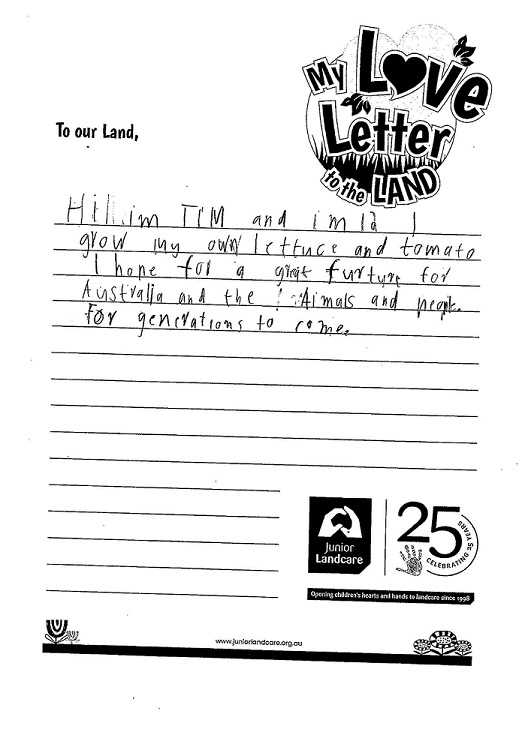 My Love
Letter
to the LAND
To our Land,
im TIM and im 12 I
grow my own lettuce and tomato
I hope for a great furture for
Australia and the Aimals and people.
For generations to come.
Junior
Landcare
25
CELEBRATING 25 YEARS
Opening children's hearts and hands to landcare since 1998
www.juniorlandcare.org.au